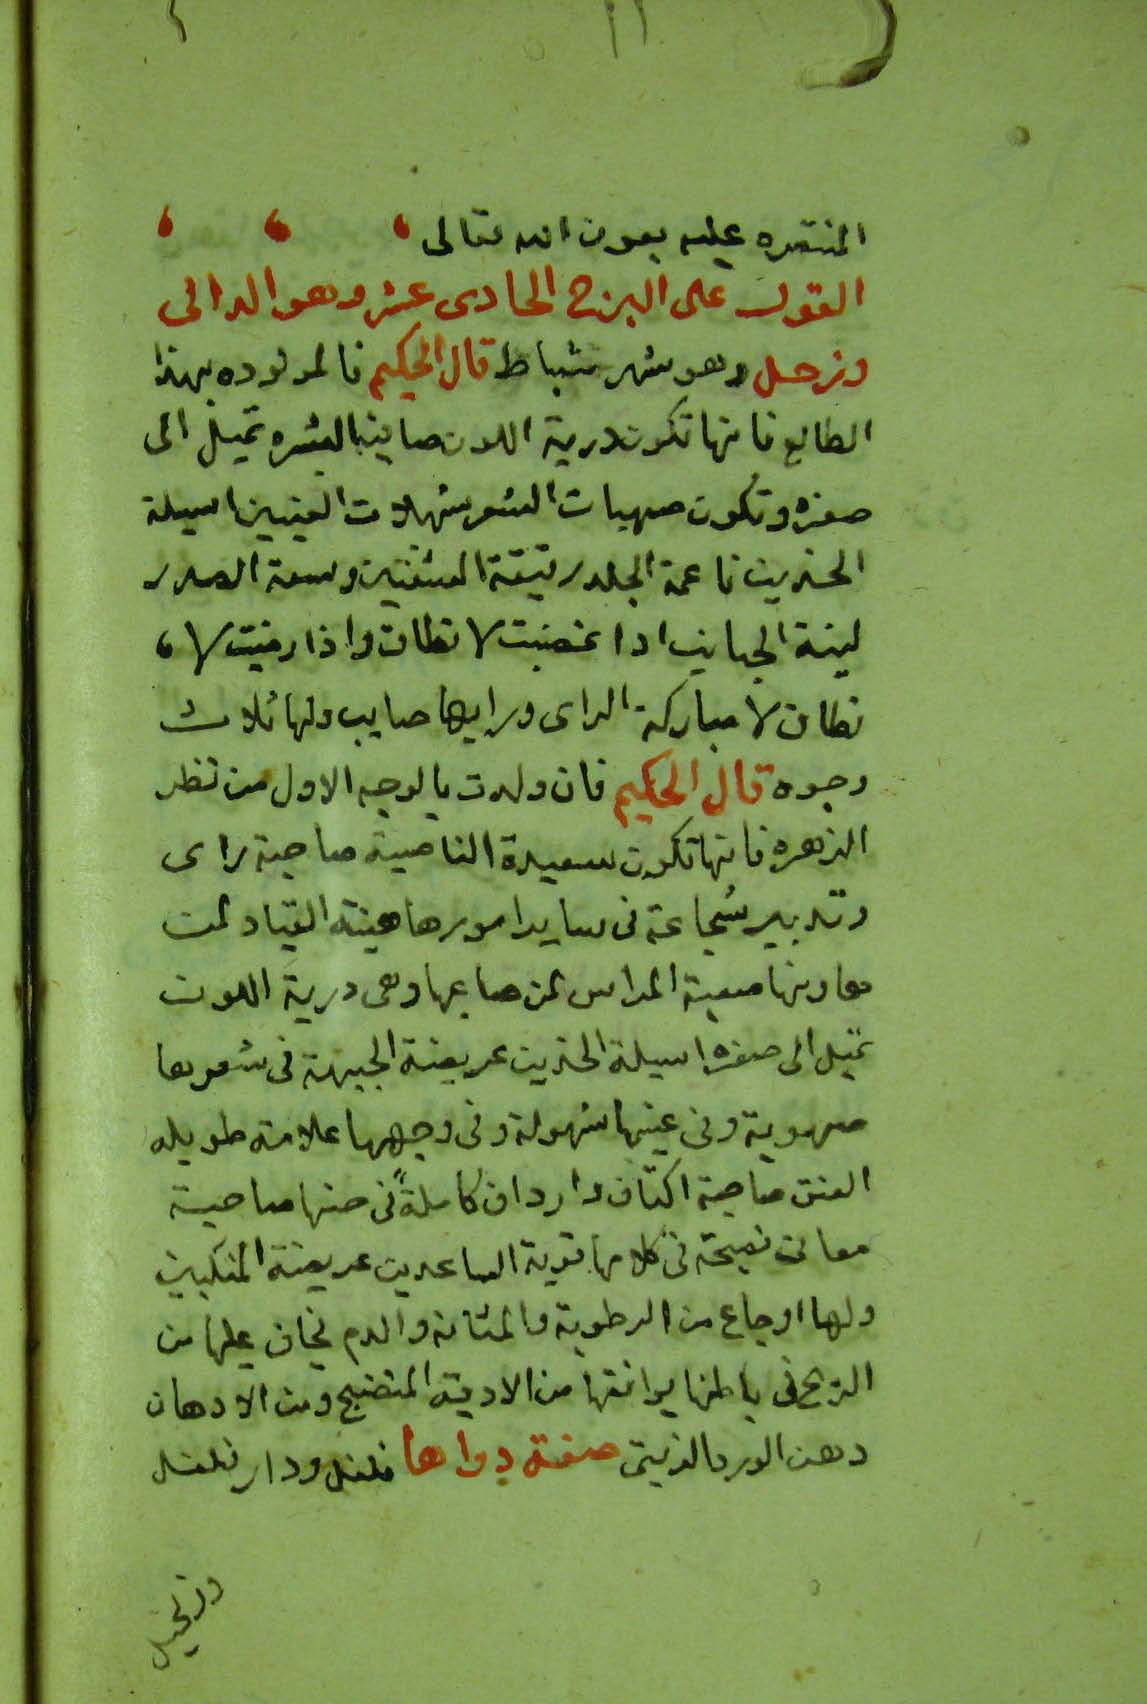 المنتصره عليه بعون الله تعالى
القول على البرج الحادى عشر وهو الدالى
وزحل وهو شهر شباط قال الحكيم فالمولوده بهذا
الطالع فانها تكون درية اللون صافية البشره تميل الى
صفره وتكون صهبات الشعر شهلات العينين اسيلة
الخدين ناعمة الجلد رقيقة الشفتين وسعة الصدر
لينة الجانب اذا غضبت لا تطاق واذا رضيت لا
تطاق لا مباركة الراى ورايها صايب ولها ثلاث
وجوه قال الحكيم فان ولدت بالوجه الاول من نظر
الزهره فانها تكون سعيدة الناصية صاحبة راى
وتدبير شجاعة فى ساير امورها هينة القياد لمن
هاونها صعبة المراس لمن صاعبها وهى درية اللون
تميل الى صفره اسيلة الخدين عريضة الجبهة فى شعورها
صهوبة وفى عينيها شهولة وفى وجهها علامة طويله
العنق صاحبة اكتاف وارداف كاملةً فى حسنها صاحبة
معانى فصيحة فى كلامها قوية الساعدين عريضة المنكبين
ولها اوجاع من الرطوبة والمثانه والدم يخاف عليها من
الريح فى باطنها يوافقها من الادوية المنضج ومن الادهان
دهن الورد بالزيت صفة دواها فلفل ودار فلفل
وزنجبيل